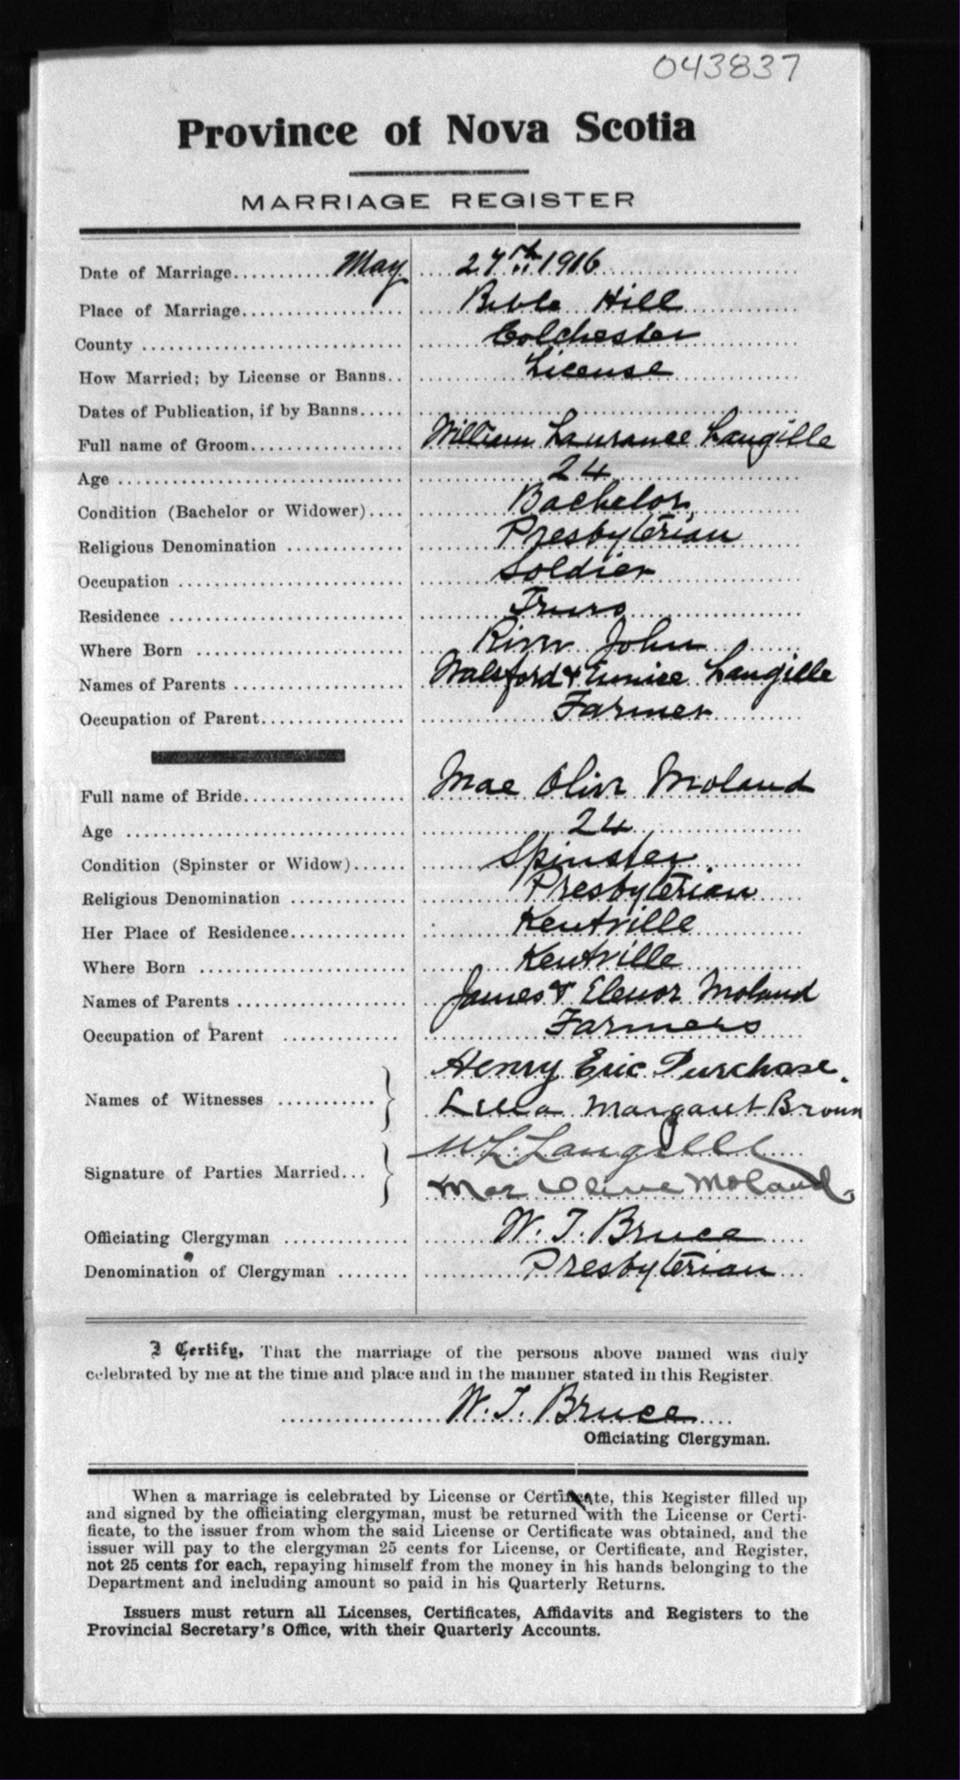 043837
Province of Nova Scotia
MARRIAGE REGISTER
Date of Marriage........... May 27th 1916
Place of Marriage.................. Bible Hill
County ............................. Colchester
How Married; by License or Banns.. License
Dates of Publication, if by Banns.....
Full name of Groom................. William Laurance Langille
Age ................................ 24
Condition (Bachelor or Widower).... Bachelor
Religious Denomination ............. Presbyterian
Occupation ......................... Soldier
Residence .......................... Truro
Where Born ......................... River John
Names of Parents ................... Walsford & Eunice Langille
Occupation of Parent................ Farmer
Full name of Bride.................. Mae Olive Moland
Age ................................ 24
Condition (Spinster or Widow)...... Spinster
Religious Denomination ............. Presbyterian
Her Place of Residence............. Kentville
Where Born ......................... Kentville
Names of Parents ................... James & Elenor Moland
Occupation of Parent ............. Farmers
Henry Eric Purchase.
Names of Witnesses ...........
Margaret Brown
W L Langille
Signature of Parties Married...
Mae Olive Moland
Officiating Clergyman .............. W. T. Bruce
Denomination of Clergyman ........ Presbyterian
I Certify, That the marriage of the persons above named was duly
celebrated by me at the time and place and in the manner stated in this Register.
W. T. Bruce
Officiating Clergyman.
When a marriage is celebrated by License or Certificate, this Register filled up
and signed by the officiating clergyman, must be returned with the License or Certi-
ficate, to the issuer from whom the said License or Certificate was obtained, and the
issuer will pay to the clergyman 25 cents for License, or Certificate, and Register,
not 25 cents for each, repaying himself from the money in his hands belonging to the
Department and including amount so paid in his Quarterly Returns.
Issuers must return all Licenses, Certificates, Affidavits and Registers to the
Provincial Secretary's Office, with their Quarterly Accounts.